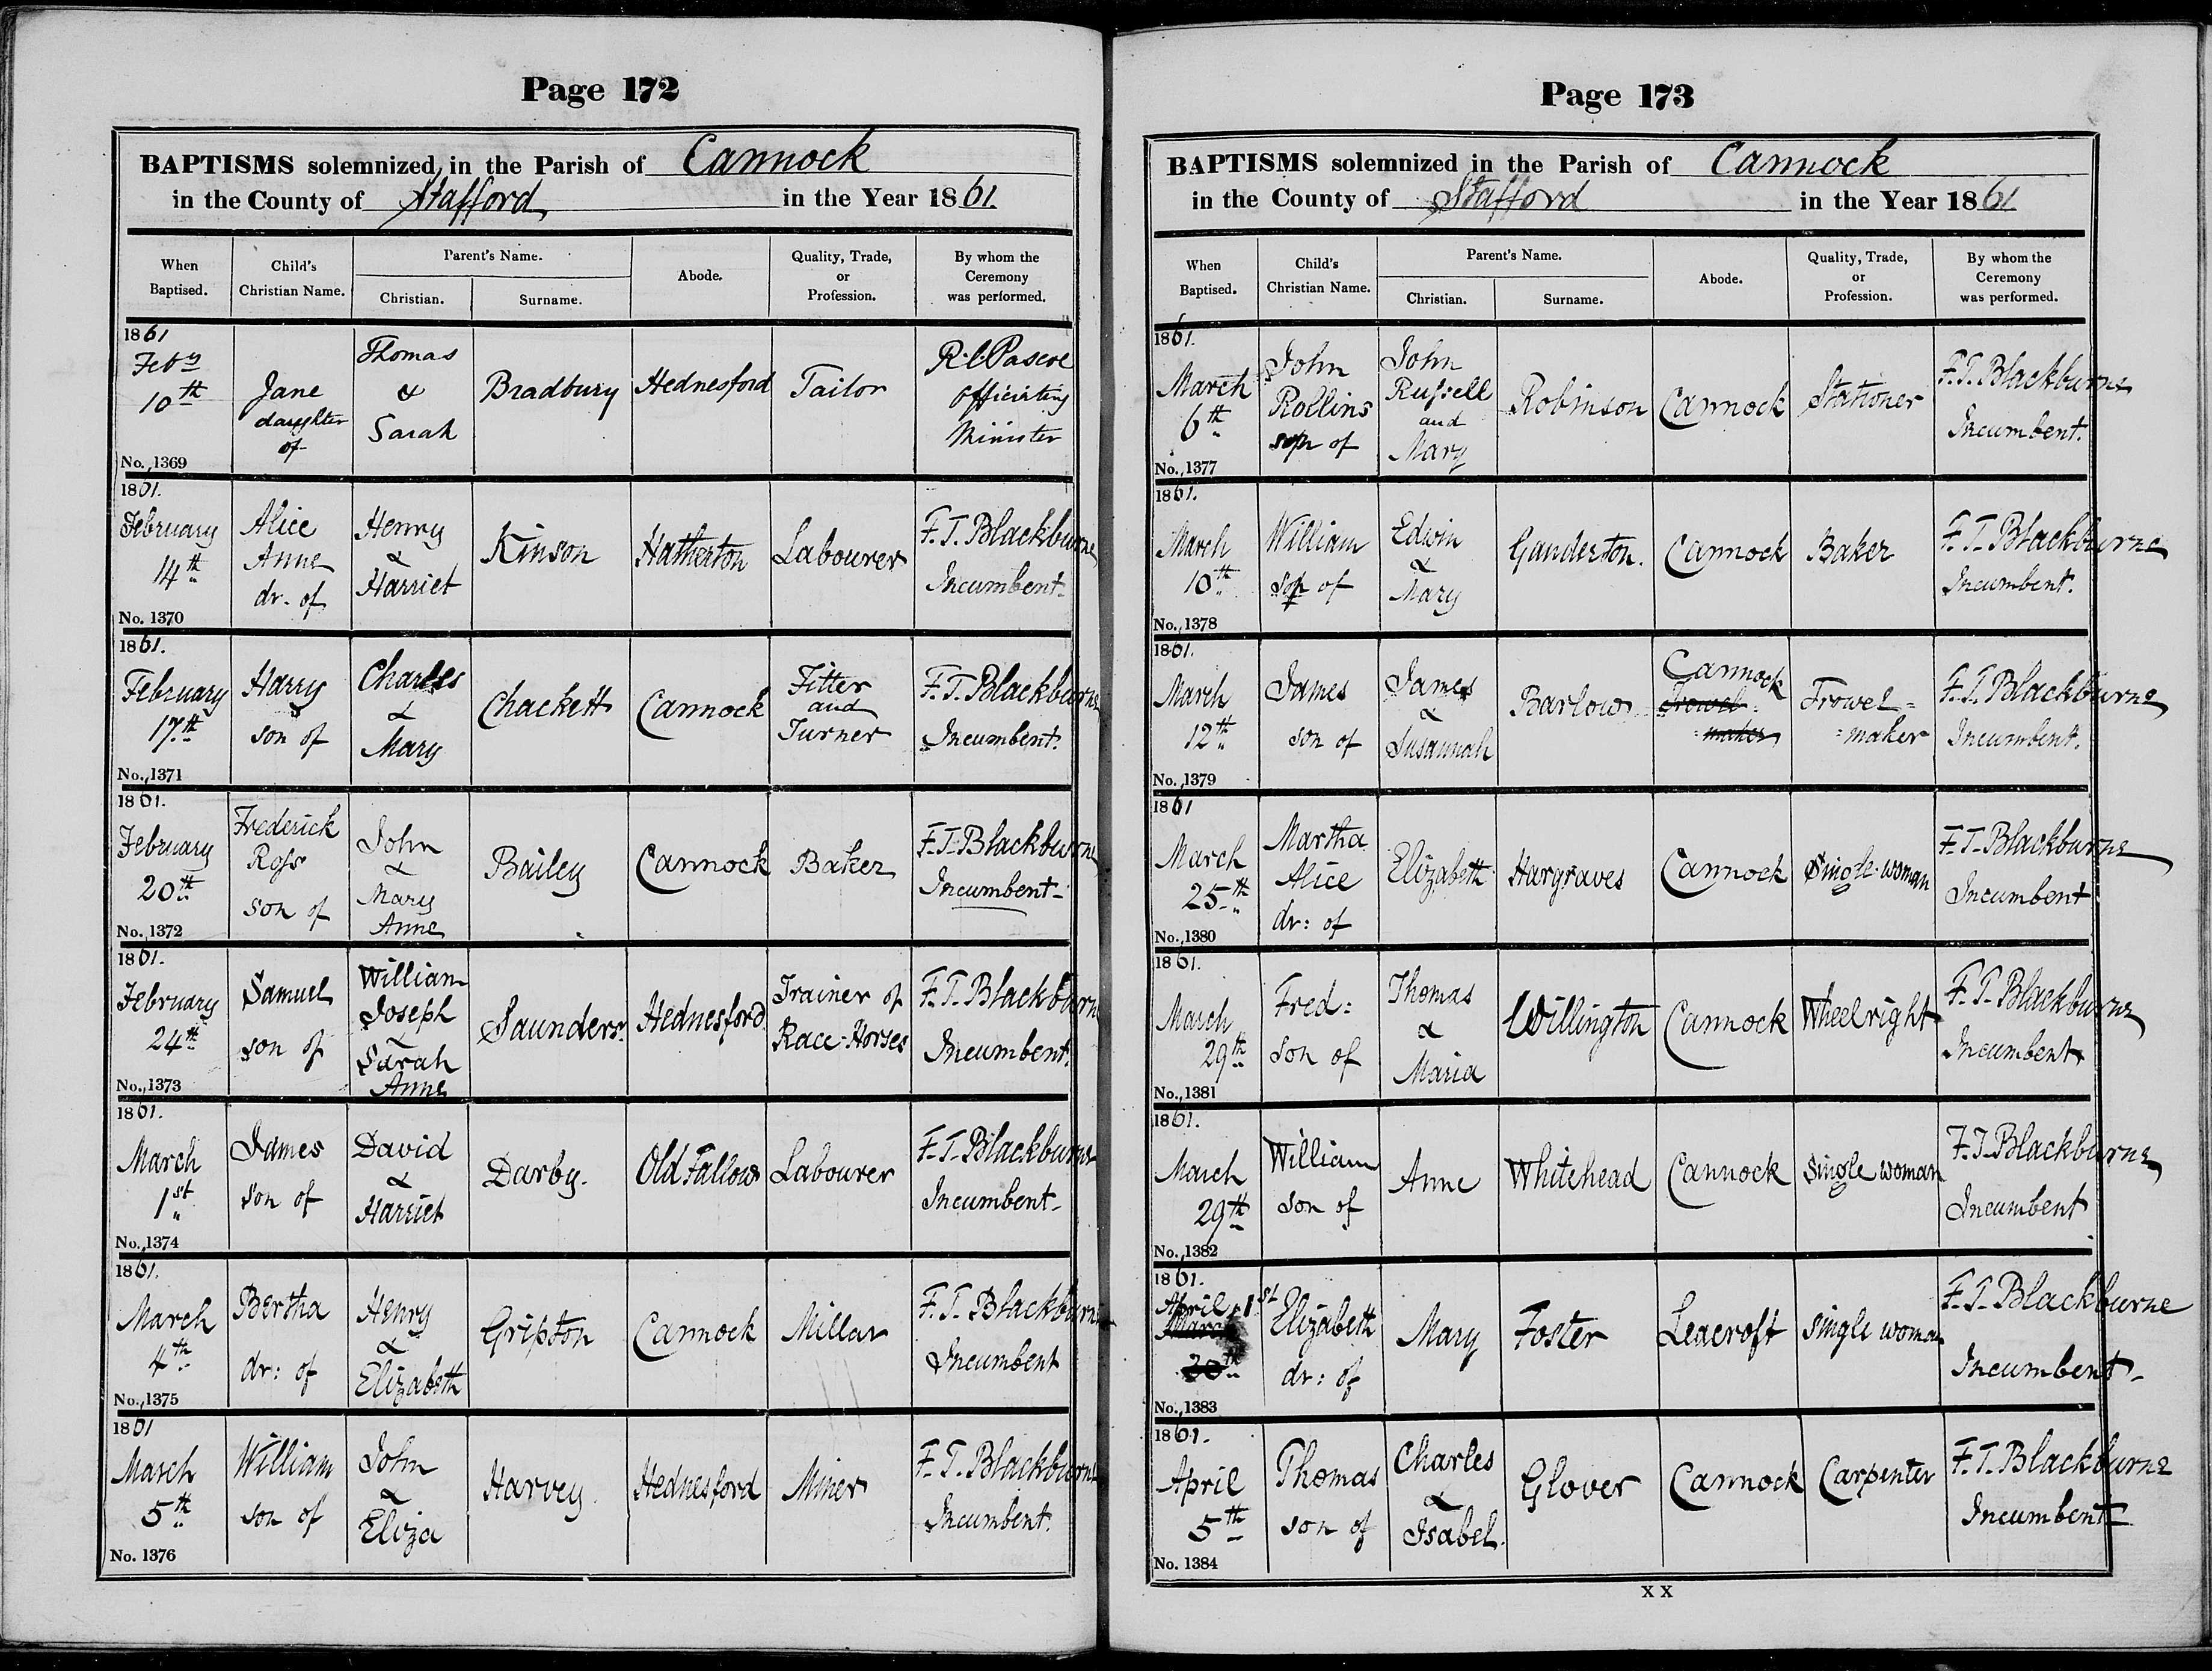 Page 172
BAPTISMS solemnized in the Parish of Cannock
in the County of Stafford in the Year 1861.
When Baptised.
Child's Christian Name.
Parent's Name.
Christian.
Surname.
Abode.
Quality, Trade, or Profession.
By whom the Ceremony was performed.
1861
Feby
10th
No. 1369
Jane
daughter
of
Thomas
&
Sarah
Bradbury
Hednesford
Tailor
R.C. Pascoe
Officiating
Minister
1861.
February
14th
No. 1370
Alice
Anne
dr. of
Henry
&
Harriet
Kinson
Hatherton
Labourer
F.T. Blackburne
Incumbent
1861.
February
17th
No. 1371
Harry
son of
Charles
&
Mary
Chackett
Cannock
Fitter
and
Turner
F.T. Blackburne
Incumbent.
1861.
February
20th
No. 1372
Frederick
Ross
son of
John
&
Mary
Anne
Bailey
Cannock
Baker
F.T. Blackburne
Incumbent
1861.
February
24th
No. 1373
Samuel
son of
William
Joseph
&
Sarah
Anne
Saunders.
Hednesford
Trainer of
Race-Horses
F.T. Blackburne
Incumbent.
1861.
March
1st
No. 1374
James
son of
David
&
Harriet
Darby.
Old Fallow
Labourer
F.T. Blackburne
Incumbent
1861.
March
4th
No. 1375
Bertha
dr: of
Henry
&
Elizabeth
Gripton
Cannock
Millar
F.T. Blackburne
Incumbent
1861
March
5th
No. 1376
William
son of
John
&
Eliza
Harvey.
Hednesford
Miner
F.T. Blackburne
Incumbent.
Page 173
BAPTISMS solemnized in the Parish of Cannock
in the County of Stafford in the Year 1861
When Baptised.
Child's Christian Name.
Parent's Name.
Christian.
Surname.
Abode.
Quality, Trade, or Profession.
By whom the Ceremony was performed.
1861.
March
6th
No. 1377
John
Rollins
son of
John
Russell
and
Mary
Robinson
Cannock
Stationer
F.T. Blackburne
Incumbent.
1861.
March
10th
No. 1378
William
son of
Edwin
&
Mary
Ganderton.
Cannock
Baker
F.T. Blackburne
Incumbent.
1861.
March
12th
No. 1379
James
son of
James
&
Susannah
Barlow
Cannock
Trowel-
-maker
Trowel-
-maker
F.T. Blackburne
Incumbent.
1861
March
25th
No. 1380
Martha
Alice
dr: of
Elizabeth
Hargraves
Cannock
Single-woman
F.T. Blackburne
Incumbent
1861.
March
29th
No. 1381
Fred:
son of
Thomas
&
Maria
Willington
Cannock
Wheelright
F.T. Blackburne
Incumbent
1861.
March
29th
No. 1382
William
son of
Anne
Whitehead
Cannock
Single woman
F.T. Blackburne
Incumbent
1861.
April 1st
March
No. 1383
Elizabeth
dr: of
Mary
Foster
Leacroft
Single woman
F.T. Blackburne
Incumbent
1861.
April
5th
No. 1384
Thomas
son of
Charles
&
Isabel.
Glover
Cannock
Carpenter
F.T. Blackburne
Incumbent
X X